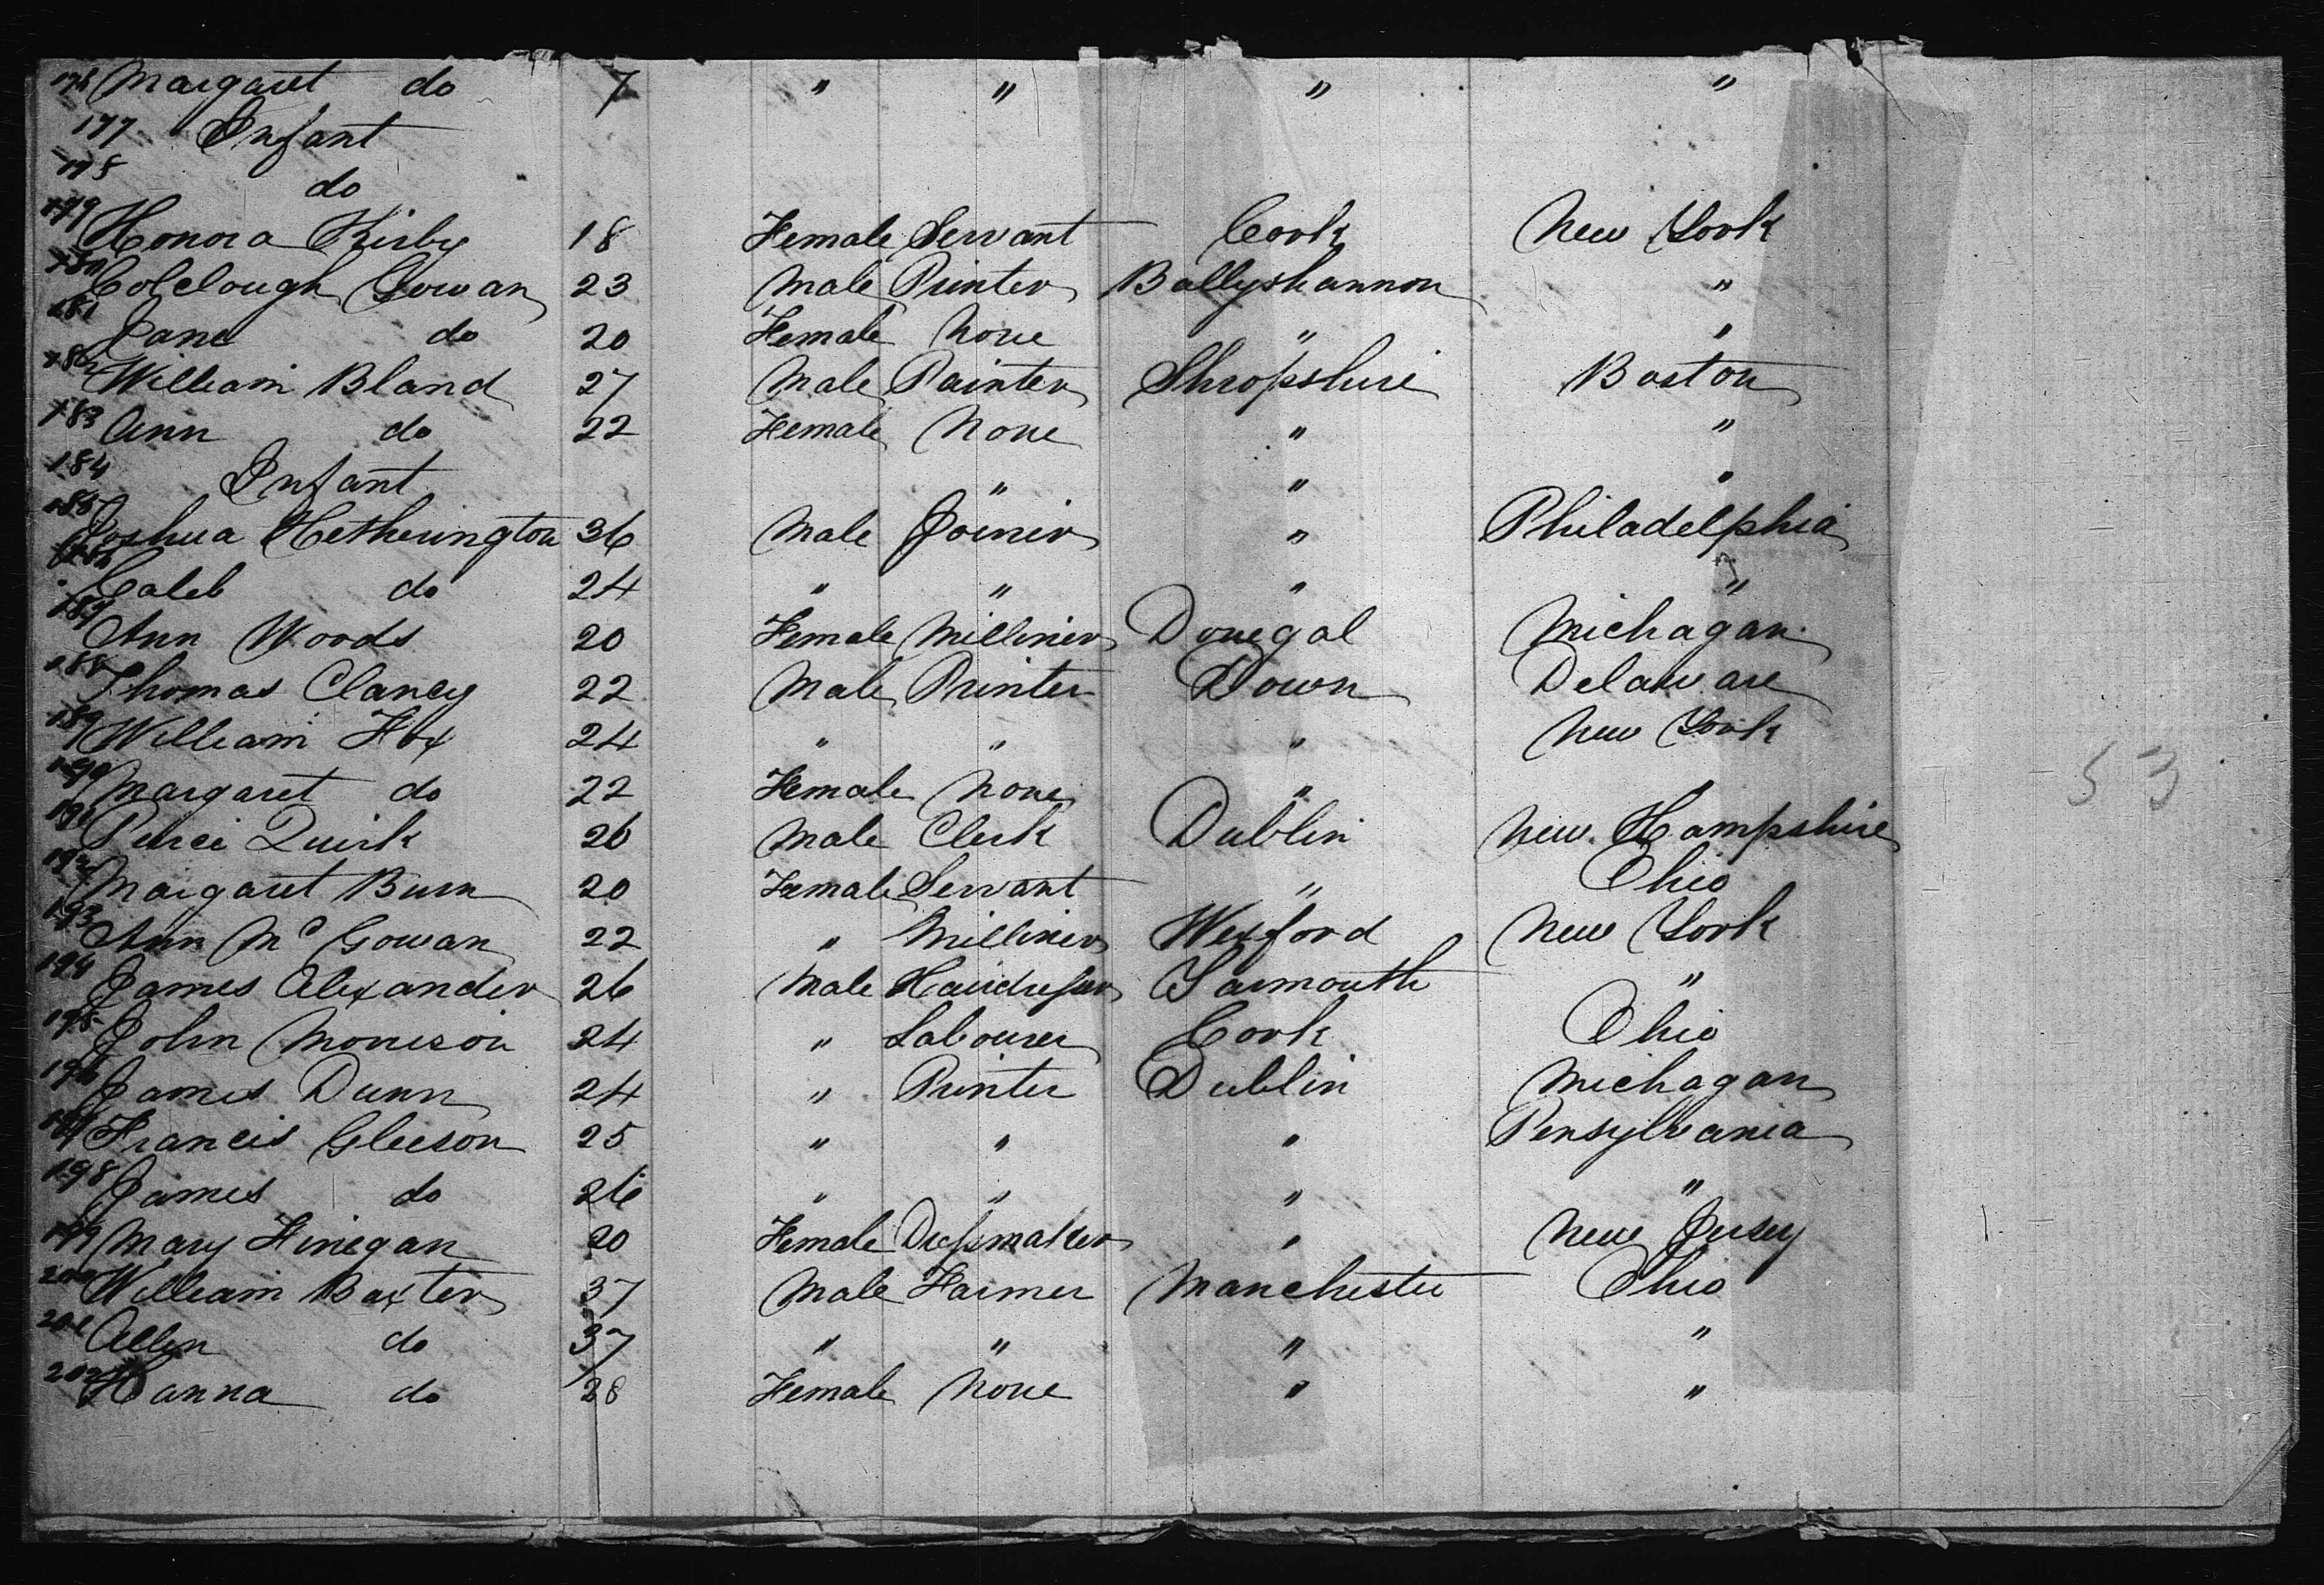 176 Margaret do 7 " " " "
177 Infant
178 do
179 Honora Kirby 18 Female Servant Cork New York
180 Colclough Gowan 23 Male Printer Ballyshannon "
181 Jane do 20 Female None " "
182 William Bland 27 Male Painter Shropshire Boston
183 Ann do 22 Female None " "
184 Infant " " "
185 Joshua Hetherington 36 Male Joiner " Philadelphia
186 Caleb do 24 " " " "
187 Ann Woods 20 Female Milliner Donegal Michagan
188 Thomas Clancy 22 Male Printer Down Delaware
189 William Fox 24 " " " New York
190 Margaret do 22 Female None "
191 Peirce Quirk 26 Male Clerk Dublin New Hampshire
192 Margaret Burn 20 Female Servant " Ohio
193 Ann Mc Gowan 22 " Milliner Wexford New York
194 James Alexander 26 Male Hairdresser Yarmouth "
195 John Morrison 24 " Labourer Cork Ohio
196 James Dunn 24 " Printer Dublin Michagan
197 Francis Gleeson 25 " " " Pensylvania
198 James do 26 " " " "
199 Mary Finegan 20 Female Dressmaker " New Jersey
200 William Baxter 37 Male Farmer Manchester Ohio
201 Allen do 37 " " " "
202 Hanna do 28 Female None " "
53